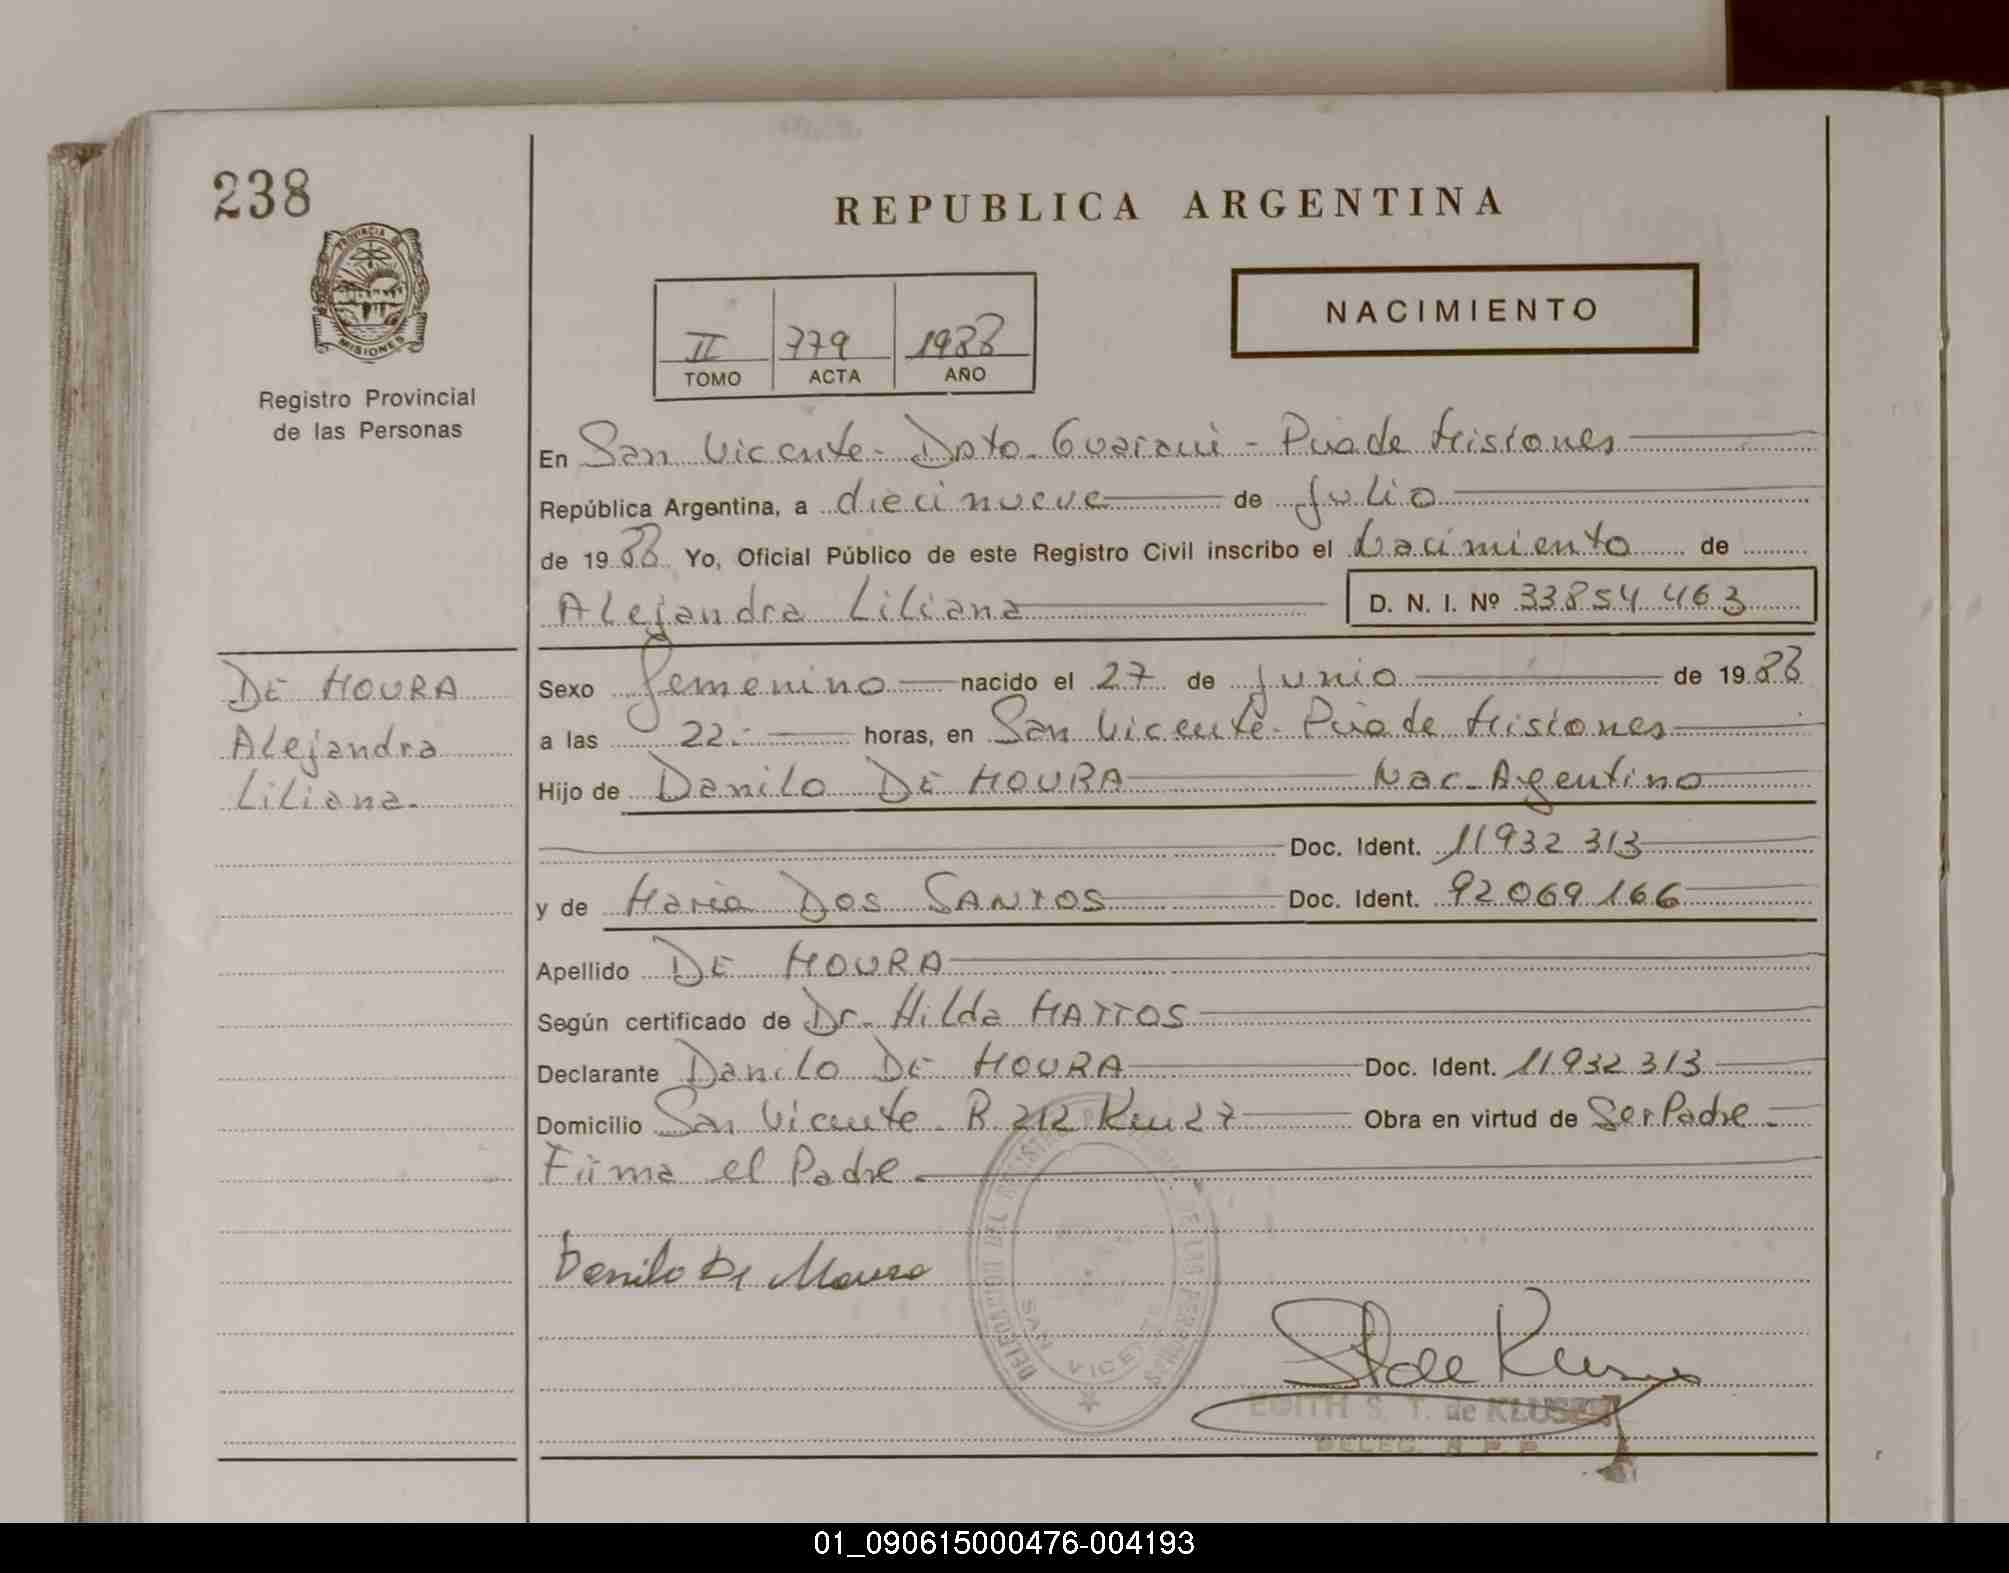 238
REPUBLICA ARGENTINA
PROVINCIA DE
MISIONES
Registro Provincial
de las Personas
NACIMIENTO
II 779 1988
TOMO ACTA AÑO
En San Vicente - Dpto. Guaraní - Pcia de Misiones
República Argentina, a diecinueve de Julio
de 1988 Yo, Oficial Público de este Registro Civil inscribo el Nacimiento de
Alejandra Liliana D. N. I. Nº 33854 463
DE MOURA
Alejandra
Liliana.
Sexo femenino nacido el 27 de junio de 1988
a las 22.- horas, en San Vicente - Pcia de Misiones
Hijo de Danilo DE MOURA Nac. Argentino
Doc. Ident. 11932 313
y de Maria DOS SANTOS Doc. Ident. 92069 166
Apellido DE MOURA
Según certificado de Dr. Hilda MATTOS
Declarante Danilo DE MOURA Doc. Ident. 11932 313
Domicilio San Vicente - R. 212 Km 27 Obra en virtud de Ser Padre.-
Firma el Padre.
Danilo De Moura
DELEGACION DEL REGISTRO DE LAS PERSONAS
SAN VICENTE
EDITH S. T. de KLUSER
DELEG. R P P
01_090615000476-004193